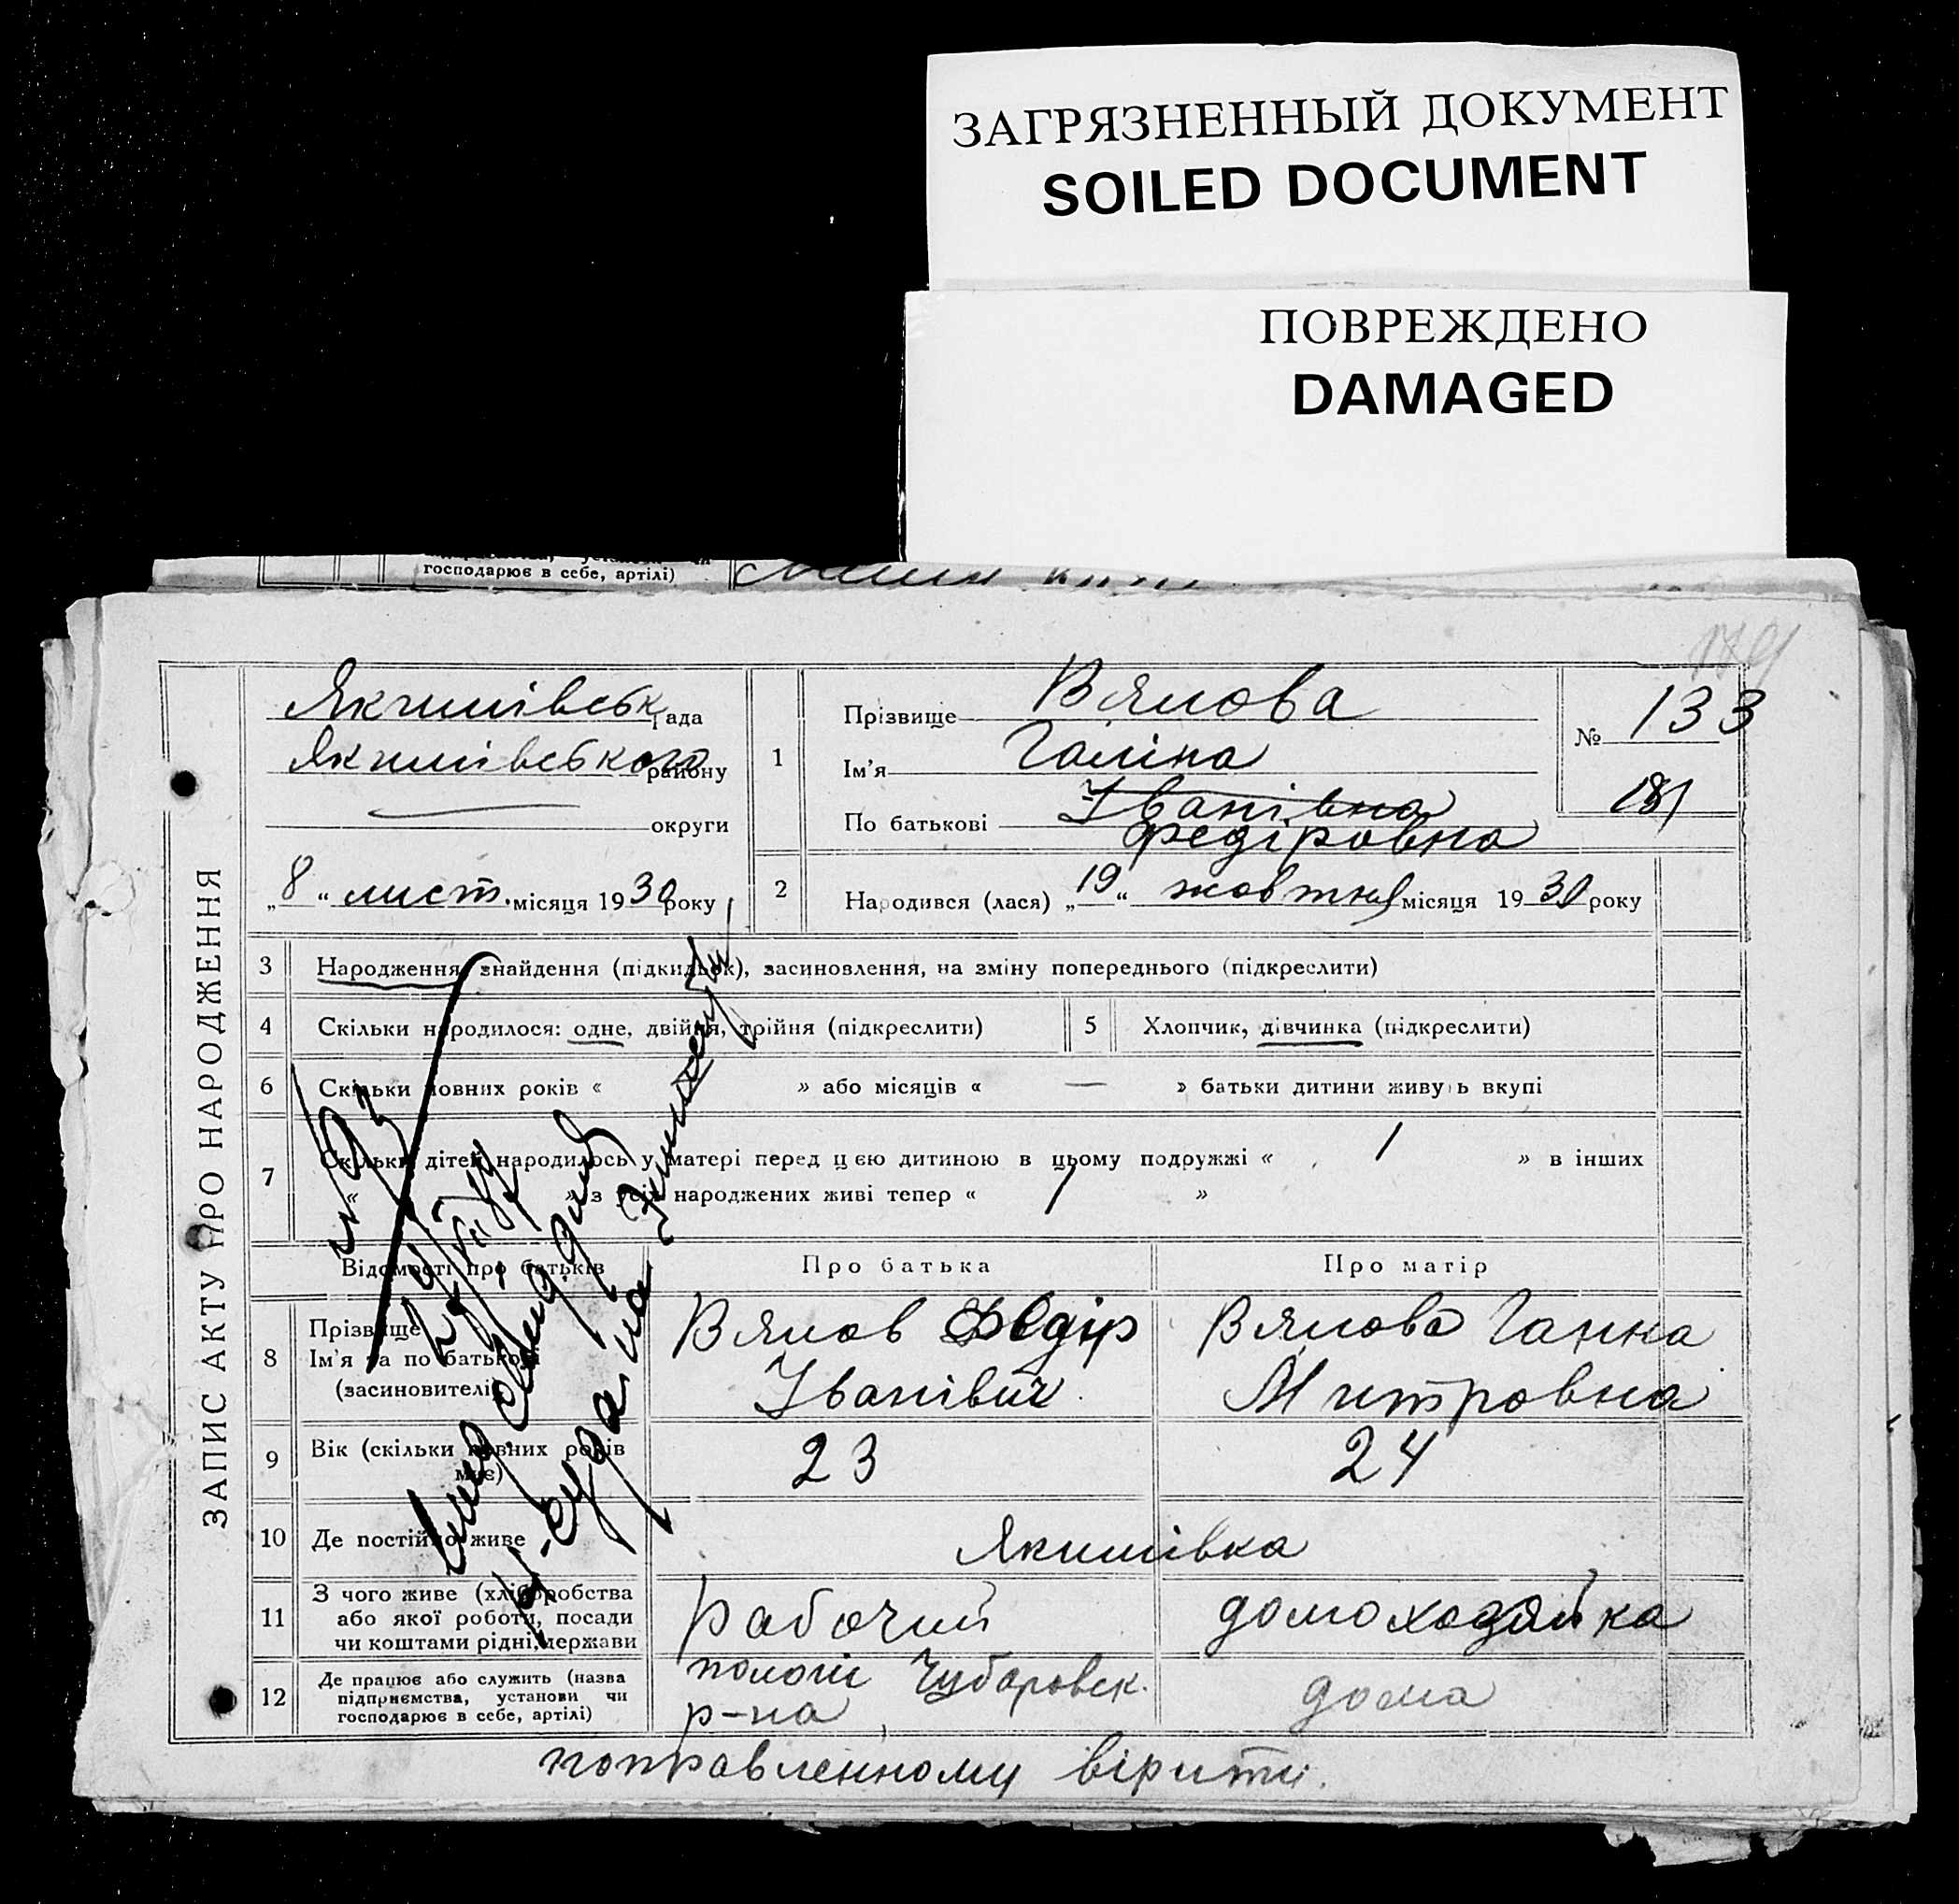 ЗАГРЯЗНЕННЫЙ ДОКУМЕНТ
SOILED DOCUMENT
ПОВРЕЖДЕНО
DAMAGED
господарює в себе, артілі)
ЗАПИС АКТУ ПРО НАРОДЖЕННЯ
Якимівськ рада
Якимівського району
округи
„8“ лист. місяця 1930 року
1
Прізвище Вялова
Ім'я Галіна
По батькові Іванівна
Федіровна
№ 133
181
2 Народився (лася) „19“ жовтня місяця 1930 року
3 Народження, знайдення (підкидьок), засиновлення, на зміну попереднього (підкреслити)
4 Скільки народилося: одне, двійня, трійня (підкреслити)
5 Хлопчик, дівчинка (підкреслити)
6 Скільки повних років « » або місяців « — » батьки дитини живуть вкупі
7 Скільки дітей народилось у матері перед цією дитиною в цьому подружжі « 1 » в інших
« » з усіх народжених живі тепер « 1 »
Відомості про батьків Про батька Про матір
8 Прізвище
Ім'я та по батькові
(засиновителі)
Вялов Федір
Іванівич
Вялова Ганна
Митровна
9 Вік (скільки повних років має) 23 24
10 Де постійно живе Якимівка
11 З чого живе (хліборобства
або якої роботи, посади
чи коштами рідні, держави
Рабочий домохозяйка
12 Де працює або служить (назва
підприємства, установи чи
господарює в себе, артілі)
пологи Чубаровск.
р-на
дома
поправленному вірити.